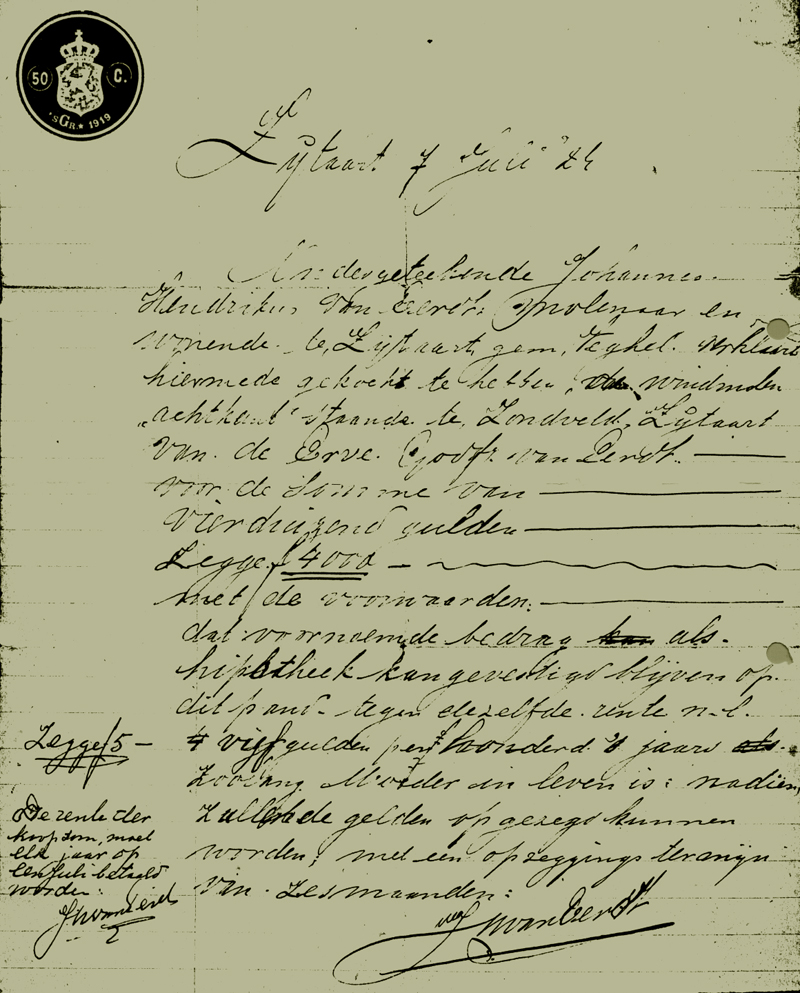 50 C.
'sGR * 1919
Zijtaart 7 Juli '24
Ondergeteekende Johannes
Hendrikus van Eerdt Molenaar en
wonende te, Zijtaart, gem, Veghel. verklaard
hiermede gekocht te hebben, de windmolen
„achtkant" staande te, Zondveld, Zijtaart
van de Erve. Godfr. van Eerdt.
voor de somme van
vierduizend gulden
Zegge f 4000
met de voorwaarden:
dat voornoemde bedrag kan als
hipotheek kan gevestigd blijven op
dit pand tegen dezelfde rente n-l.
4 vijf gulden per honderd 's jaars als
Zoolang Moeder in leven is: nadien
zullen de gelden opgezegd kunnen
worden; met een opzeggings termijn
van zes maanden:
JHvanEerdt
Zegge f 5 —
De rente der
koopsom, moet
elk jaar op
een juli betaald
worden:
JHvanEerdt